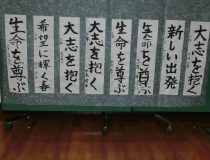 新しい出発
大志を抱く
生命を尊ぶ
生命を尊ぶ
大志を抱く
大志を抱く
希望に輝く春
生命を尊ぶ